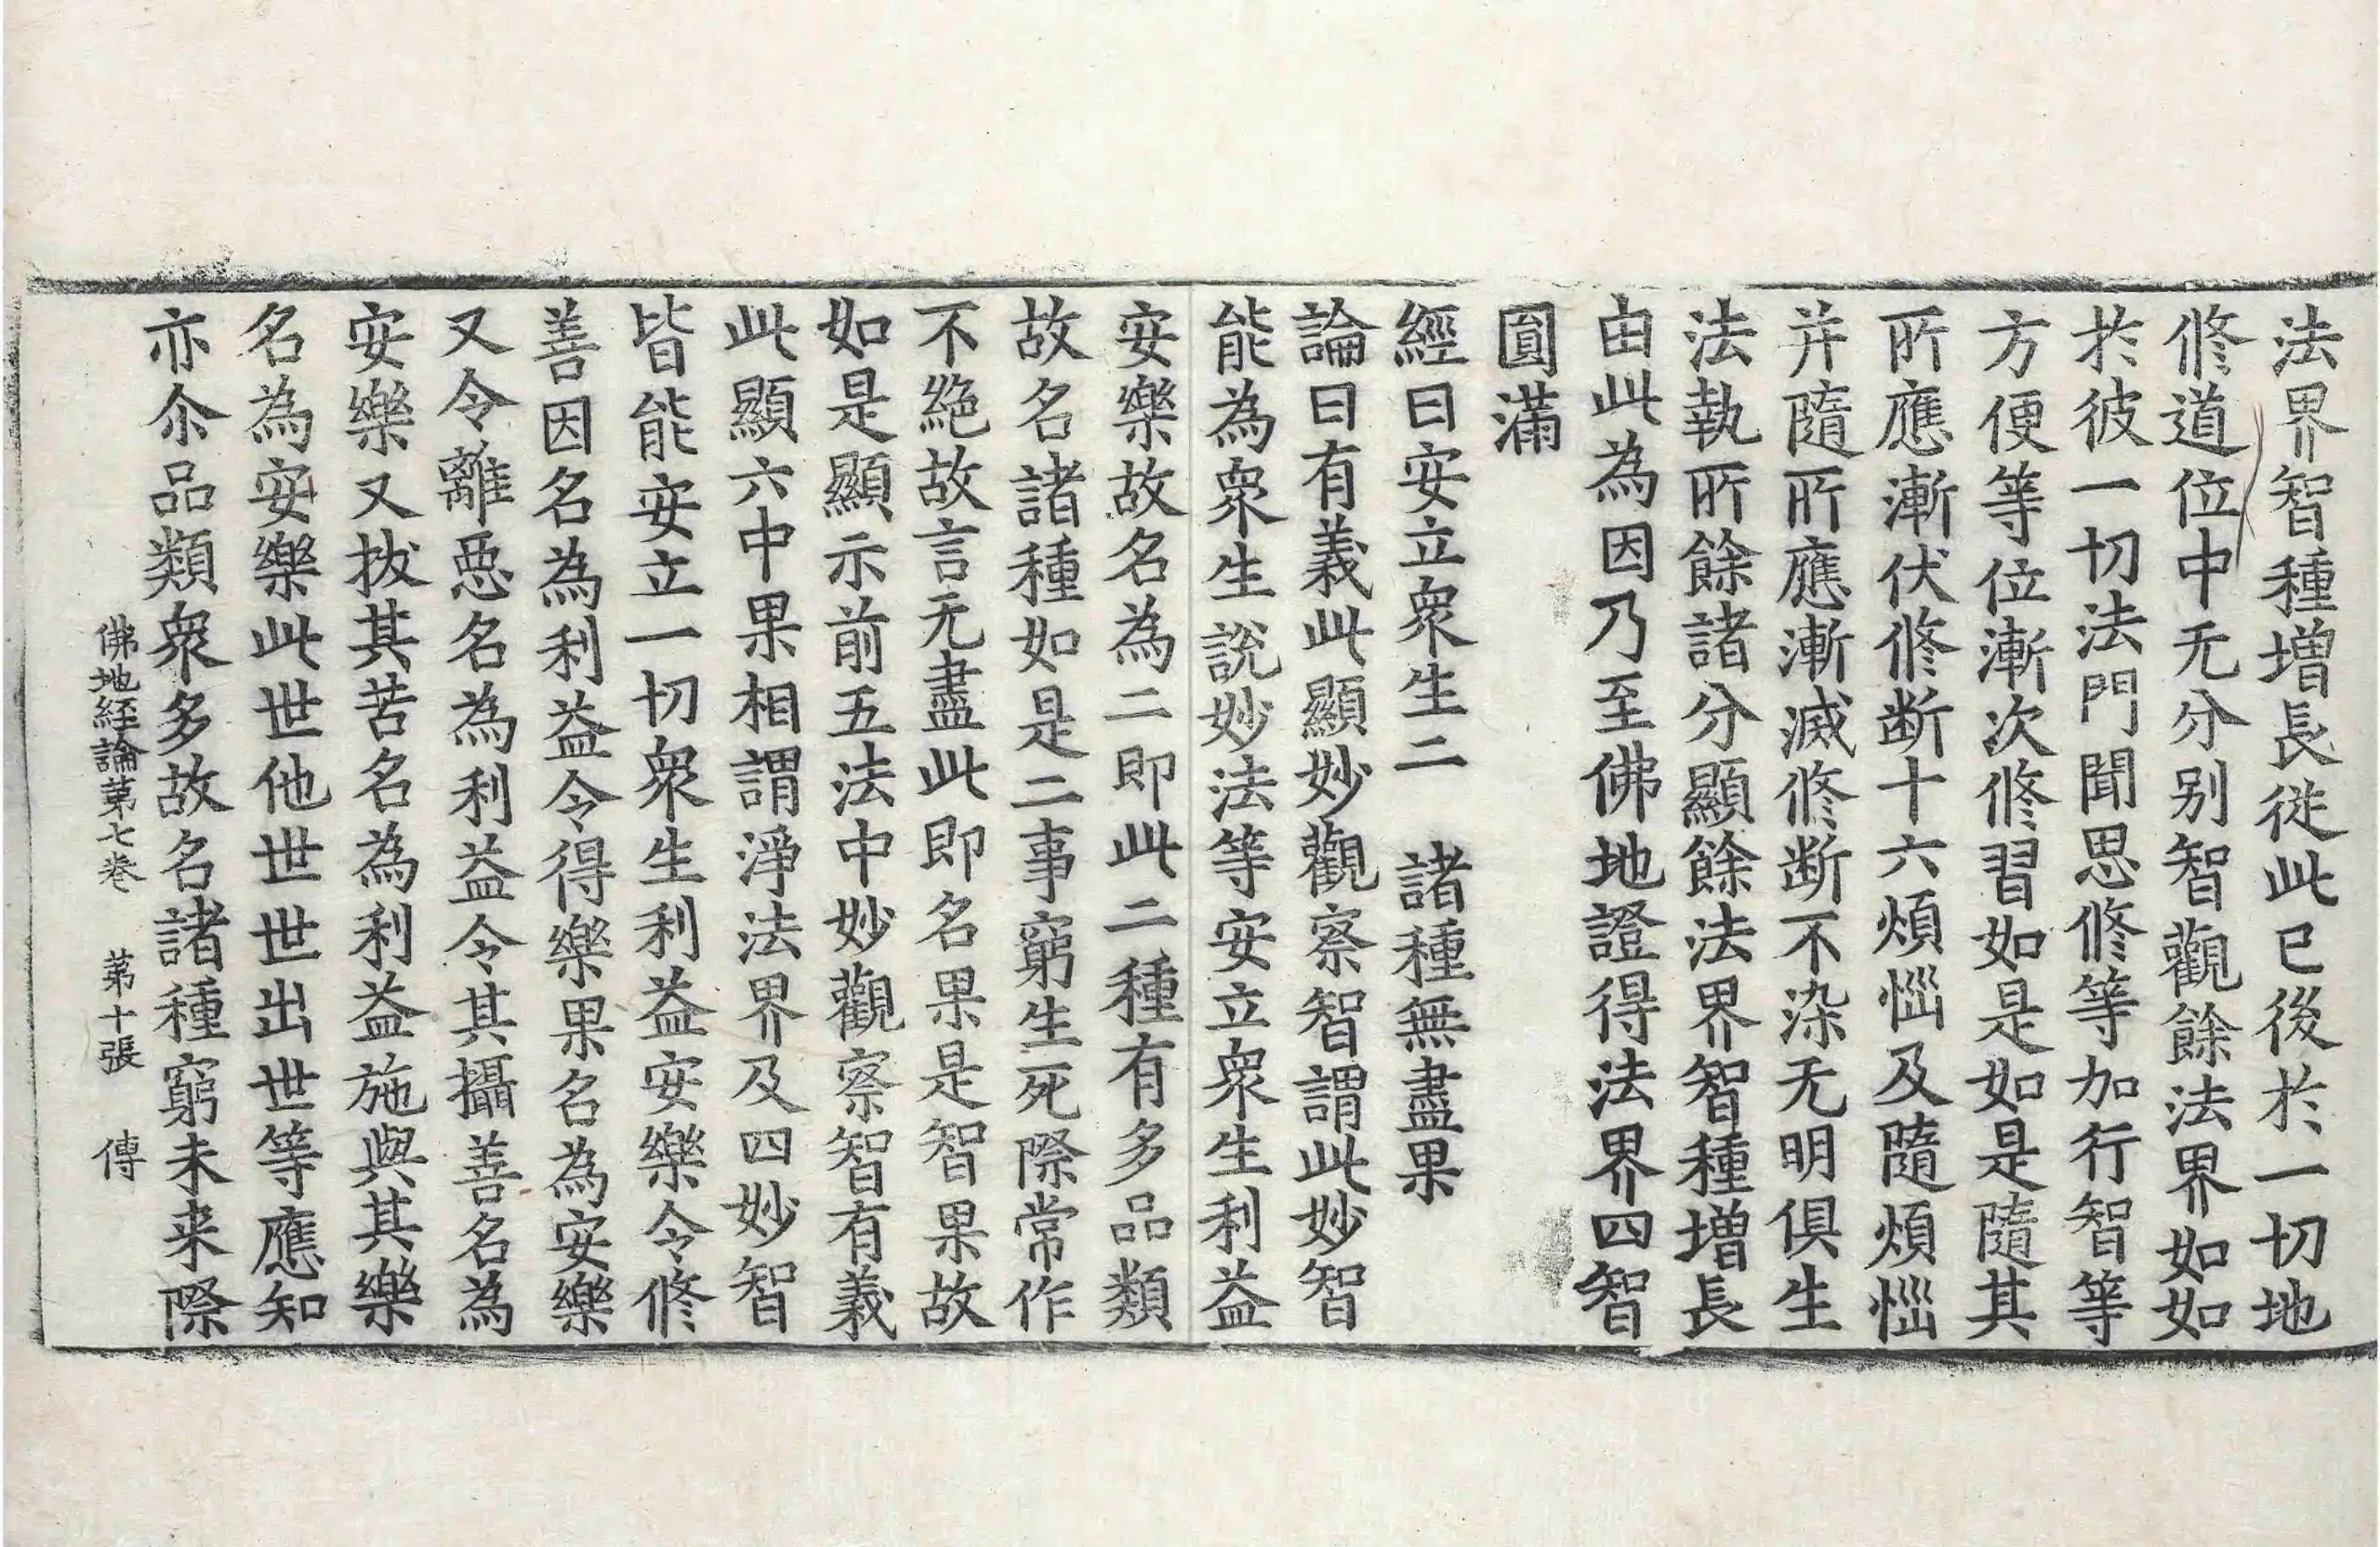 法界智種增長従此已後於一切地
修道位中无分别智觀餘法界如如
扵彼一切法門聞思修等加行智等
方便等位漸次修習如是如是隨其
所應漸伏修断十六煩惱及隨煩惱
并隨所應漸滅修断不染无明俱生
法執所餘諸分顯餘法界智種增長
由此為因乃至佛地證得法界四智
圎滿
經曰安立衆生二　諸種無盡果
論曰有義此顯妙觀察智謂此妙智
能為衆生說妙法等安立衆生利益
安樂故名為二即此二種有多品類
故名諸種如是二事窮生死際常作
不絕故言无盡此即名果是智果故
如是顯示前五法中妙觀察智有義
此顯六中果相謂淨法界及四妙智
皆能安立一切衆生利益安樂令修
善因名為利益令得樂果名為安樂
又令離惡名為利益令其攝善名為
安樂又拔其苦名為利益施與其樂
名為安樂此世他世世出世等應知
亦尒品類衆多故名諸種窮未来際
佛地經論第七卷　第十張　傳